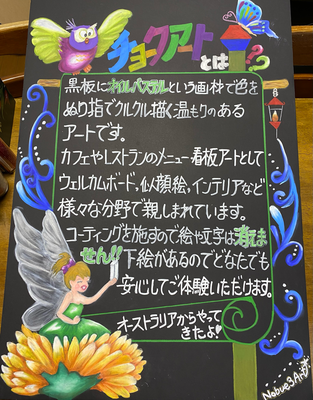 チョークアート
とは!?
黒板にオイルパステルという画材で色を
ぬり指でクルクル描く温もりのある
アートです。
カフェやレストランのメニュー看板アートとして
ウェルカムボード,似顔絵,インテリアなど
様々な分野で親しまれています。
コーティングを施すので絵や文字は消えま
せん!!下絵があるのでどなたでも
安心してご体験いただけます。
オーストラリアからやって
きたよ!